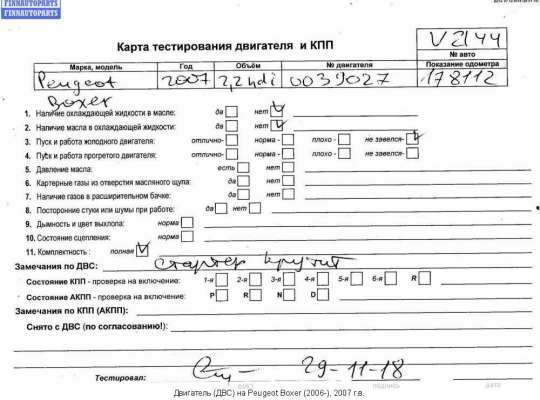 FINNAUTOPARTS
FINNAUTOPARTS
Карта тестирования двигателя и КПП
V2144
№ авто
Марка, модель Год Объём № двигателя Показание одометра
Peugeot 2007 2,2 hdi 0039027 178112
Boxer
1. Наличие охлаждающей жидкости в масле: да нет
2. Наличие масла в охлаждающей жидкости: да нет
3. Пуск и работа холодного двигателя: отлично- норма - плохо - не завелся-
4. Пуск и работа прогретого двигателя: отлично- норма - плохо - не завелся-
5. Давление масла: есть нет
6. Картерные газы из отверстия масляного щупа: да нет
7. Наличие газов в расширительном бачке: да нет
8. Посторонние стуки или шумы при работе: да нет
9. Дымность и цвет выхлопа: норма
10. Состояние сцепления: норма
11. Комплектность : полная
Замечания по ДВС: стартер крутит
Состояние КПП - проверка на включение: 1-я 2-я 3-я 4-я 5-я 6-я R
Состояние АКПП - проверка на включение: P R N D
Замечания по КПП (АКПП):
Снято с ДВС (по согласованию!):
29-11-18
Тестировал: ФИО подпись дата
Двигатель (ДВС) на Peugeot Boxer (2006-), 2007 г.в.